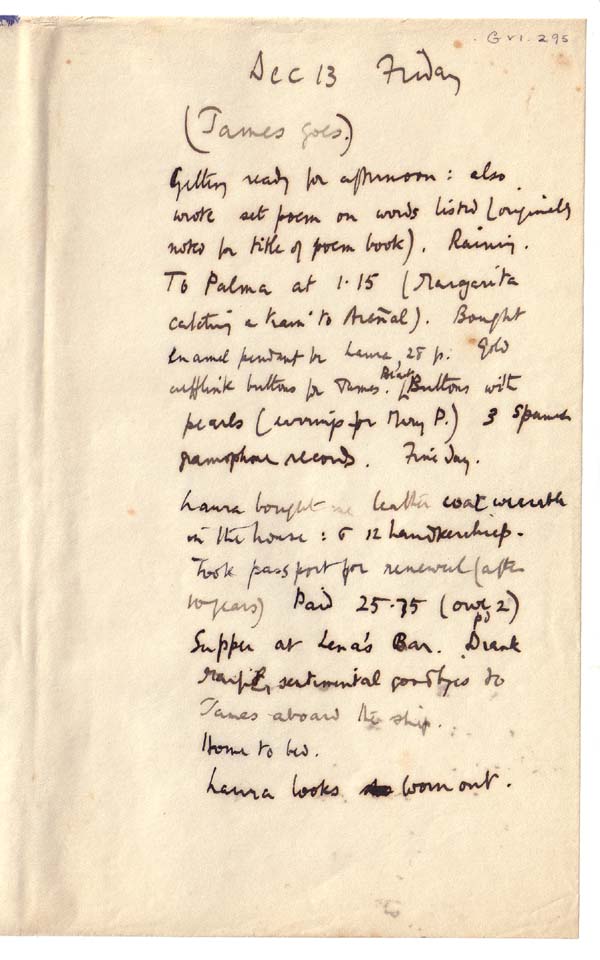 GVI. 295
Dec 13 Friday
(James goes.)
Getting ready for afternoon: also
wrote set poem on words listed (originally
noted for title of poem book). Raining.
To Palma at 1.15 (Margarita
catching a train to Arenal). Bought
enamel pendant for Laura, 25 p. Gold
cufflink buttons for James. Buttons with
pearls (earrings for Mary P.) 3 Spanish
gramophone records. Fine day.
Laura bought me leather coat wearable
in the house: & 12 handkerchiefs.
Took passport for renewal (after
10 years) Paid 25.75 (owe 2)
pd
Supper at Lena's Bar. Drank
sentimental goodbyes to
James aboard the ship.
Home to bed.
Laura looks worn out.